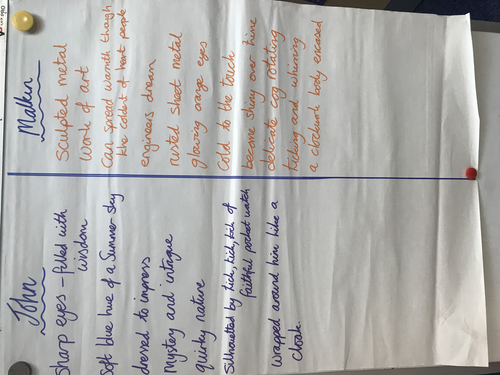 John
Sharp eyes – filled with
wisdom
Soft blue hue of a Summer sky
dressed to impress
Mystery and intrigue
quirky nature
Silhouetted by tick, tick, tick of
faithful pocket watch
Wrapped around him like a
cloak.
Malkin
Sculpted metal
Work of art
Can spread warmth though
the coldest of heart people
engineers dream
rusted sheet metal
glowing orange eyes
cold to the touch
become shiny over time
delicate cog rotating
ticking and whirring
a clockwork body encased